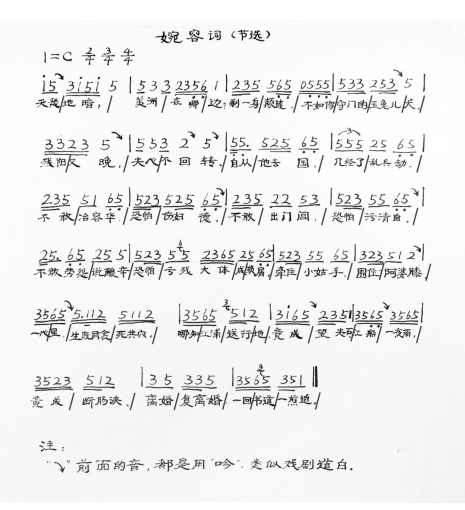 婉容词（节选）
1=C 2/4 3/4 4/4
i5 3i5i 5 | 533 2356 1 | 235 565 0555 | 533 253 5 |
天愁地暗，/ 美洲/在哪/边？剩一身/颠连，/不如你/守门的/玉兔儿/犬，/
3323 5 | 553 2 5 | 55. 525 65 | 555 25 65 |
残阳又 晚，/夫心/不回转。/自从/他去国，/几经了/乱兵劫，/
235 51 65 | 523 525 65 | 235 22 53 | 523 55 65 |
不敢/冶容华，/恐怕/伤妇德，/不敢/出门阎，/恐怕/污清白。/
25. 65 25 5 | 523 55 2365 25 65 | 523 55 65 | 323 51 2 |
不敢/劳怨/说酸辛/恐怕/亏残大体/成琐屑，/牵住/小姑手，/围住/阿婆膝，/
3565 5.112 5112 | 3565 512 | 3i65 2351 | 3565 3565 |
一心里，/生既同衾/死共穴。/ 哪知江浦/送行地，/竟成/望夫石；江船/一夜雨，/
3523 512 | 35 335 | 3565 351 ‖
竟成/断肠诀。/离婚/复离婚/一回书道/一煎迫。/
注：
“↘”前面的音，都是用“吟”，类似戏剧道白。